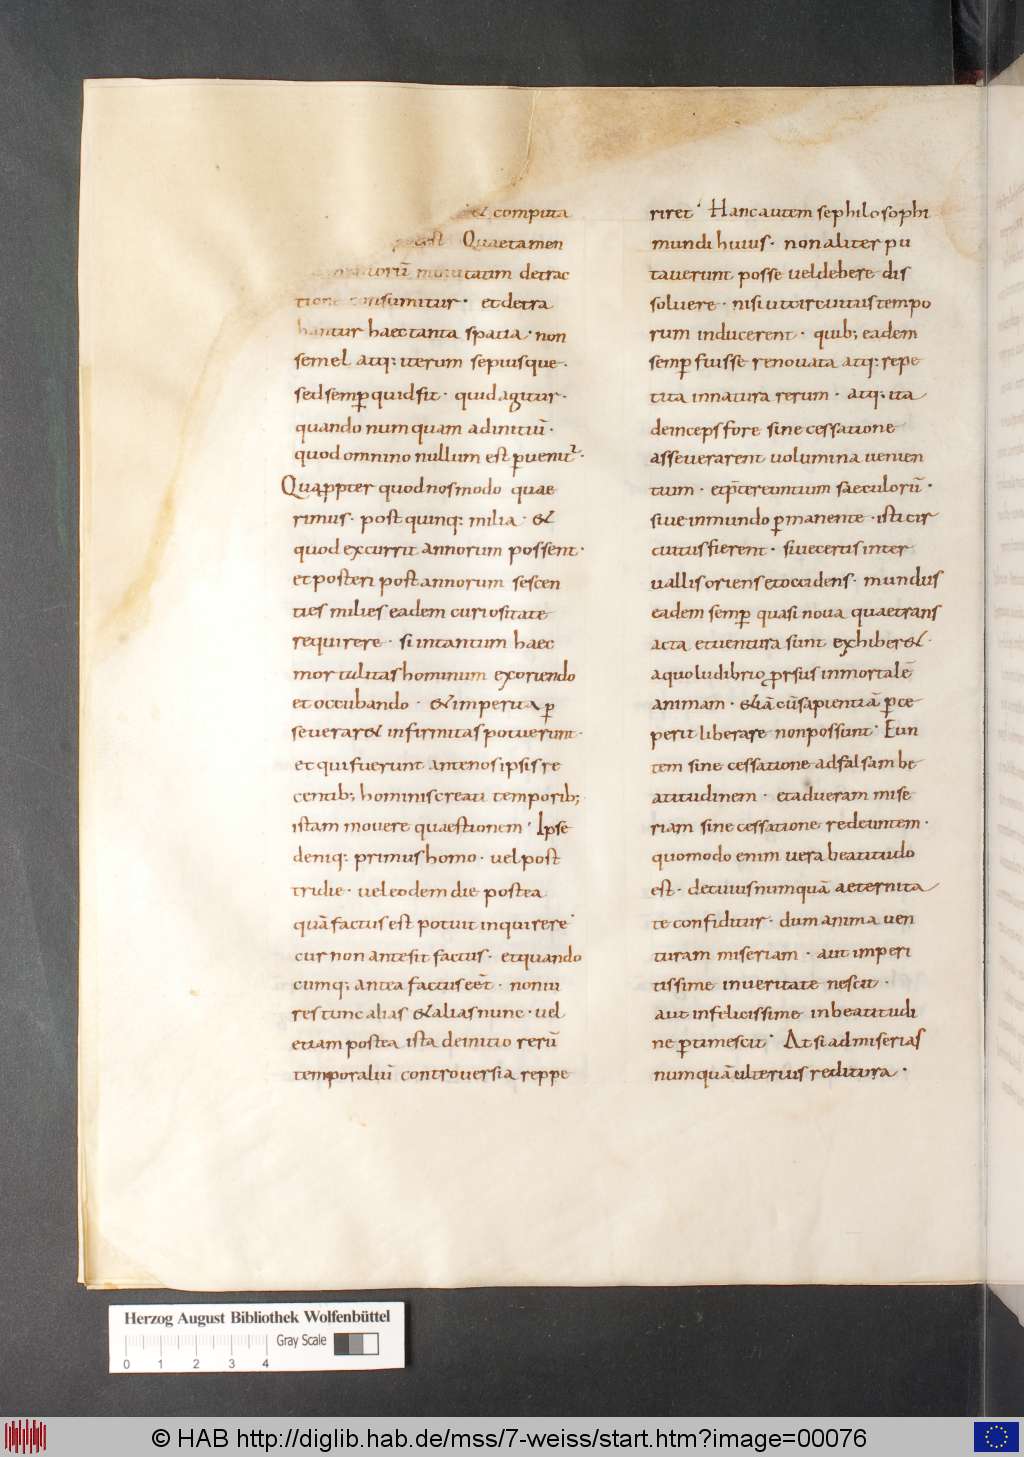 & computa
potest Quaetamen
momentorū minutatim detrac
tione consumitur · et detra
hantur haec tanta spatia · non
semel atq; iterum sepiusque ·
sed semp̱ quid sit · quid agitur ·
quando numquam ad initiū ·
quod omnino nullum est p̱uenit᷑ ·
Quap̱pter quod nos modo quae
rimus · post quinq; milia · &
quod excurrit annorum possent ·
et posteri post annorum sescen
ties milies eadem curiositate
requirere · si in tantum haec
mortalitas hominum exoriendo
et occubando · & imperita p̱
seuerar& infirmitas potuerint ·
et qui fuerunt ante nos ipsis re
centib; hominis creati temporib;
istam mouere quaestionem · Ipse
deniq; primus homo · uel post
tridie · uel eodem die postea
quā factus est potuit inquirere ·
cur non ante sit factus · et quando
cumq; antea factus eēt · non ui
res tunc alias & alias nunc · uel
etiam postea ista de initio rerū
temporaliū controuersia reppe
riret · Hanc autem se philosophi
mundi huius · non aliter pu
tauerunt posse uel debere dis
soluere · nisi ut circuitus tempo
rum inducerent · quib; eadem
semp̱ fuisse renouata atq; repe
tita in natura rerum · atq; ita
deinceps fore sine cessatione
asseuerarent uolumina uenien
tium · et p̄tereuntium saeculorū ·
siue in mundo p̱manente · isti cir
cuitus fierent · siue certis inter
uallis oriens et occidens · mundus
eadem semp̱ quasi noua quae trans
acta et uentura sunt exhiber& ·
a quo ludibrio ꝓrsus inmortalē
animam · &iā cū sapientiā p̱ce
perit liberare non possunt · Eun
tem sine cessatione ad falsam be
atitudinem · et ad ueram mise
riam sine cessatione redeuntem ·
quomodo enim uera beatitudo
est · de cuius numquā aeternita
te confiditur · dum anima uen
turam miseriam · aut imperi
tissime in ueritate nescit ·
aut infelicissime in beatitudi
ne p̱timescit · At si ad miserias
numquā ulterius reditura ·
Herzog August Bibliothek Wolfenbüttel
Gray Scale
0 1 2 3 4
© HAB http://diglib.hab.de/mss/7-weiss/start.htm?image=00076